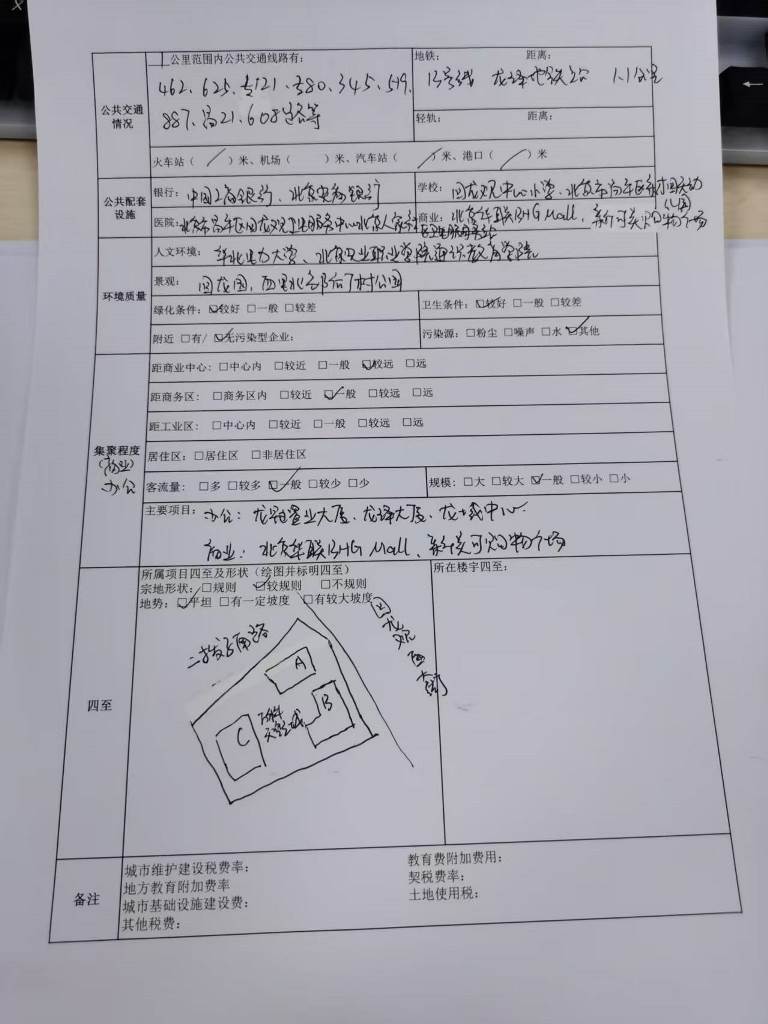 1公里范围内公共交通线路有:
462、625、专121、专80、345、519、
887、昌21、608路等
地铁: 距离:
13号线 龙泽地铁站 1.1公里
轻轨: 距离:
公共交通
情况
火车站( / )米、机场( )米、汽车站( / )米、港口( / )米
公共配套
设施
银行: 中国工商银行、北京农商银行
学校: 回龙观中心小学、北京市昌平区
幼儿园
医院: 北京市昌平区回龙观卫生服务中心
商业: 北京华联BHG Mall、新 购物广场
环境质量
人文环境: 华北电力大学、北京 职业学院通识教育学院
景观: 回龙园,西 北 村公园
绿化条件: ☑较好 □一般 □较差
卫生条件: ☑较好 □一般 □较差
附近 □有/ ☑无污染型企业:
污染源: □粉尘 □噪声 □水 ☑其他
集聚程度
(商业)
办公
距商业中心: □中心内 □较近 □一般 ☑较远 □远
距商务区: □商务区内 □较近 ☑一般 □较远 □远
距工业区: □中心内 □较近 □一般 □较远 □远
居住区: □居住区 □非居住区
客流量: □多 □较多 ☑一般 □较少 □少
规模: □大 □较大 ☑一般 □较小 □小
主要项目: 办公: 龙冠置业大厦、龙泽大厦、龙 中心
商业: 北京华联BHG Mall、新 购物广场
四至
所属项目四至及形状(绘图并标明四至)
宗地形状: □规则 ☑较规则 □不规则
地势: ☑平坦 □有一定坡度 □有较大坡度
所在楼宇四至:
二拨子南路
回龙观西大街
A
B
C
万科
城
备注
城市维护建设税费率:
教育费附加费用:
地方教育附加费率
契税费率:
城市基础设施建设费:
土地使用税:
其他税费: